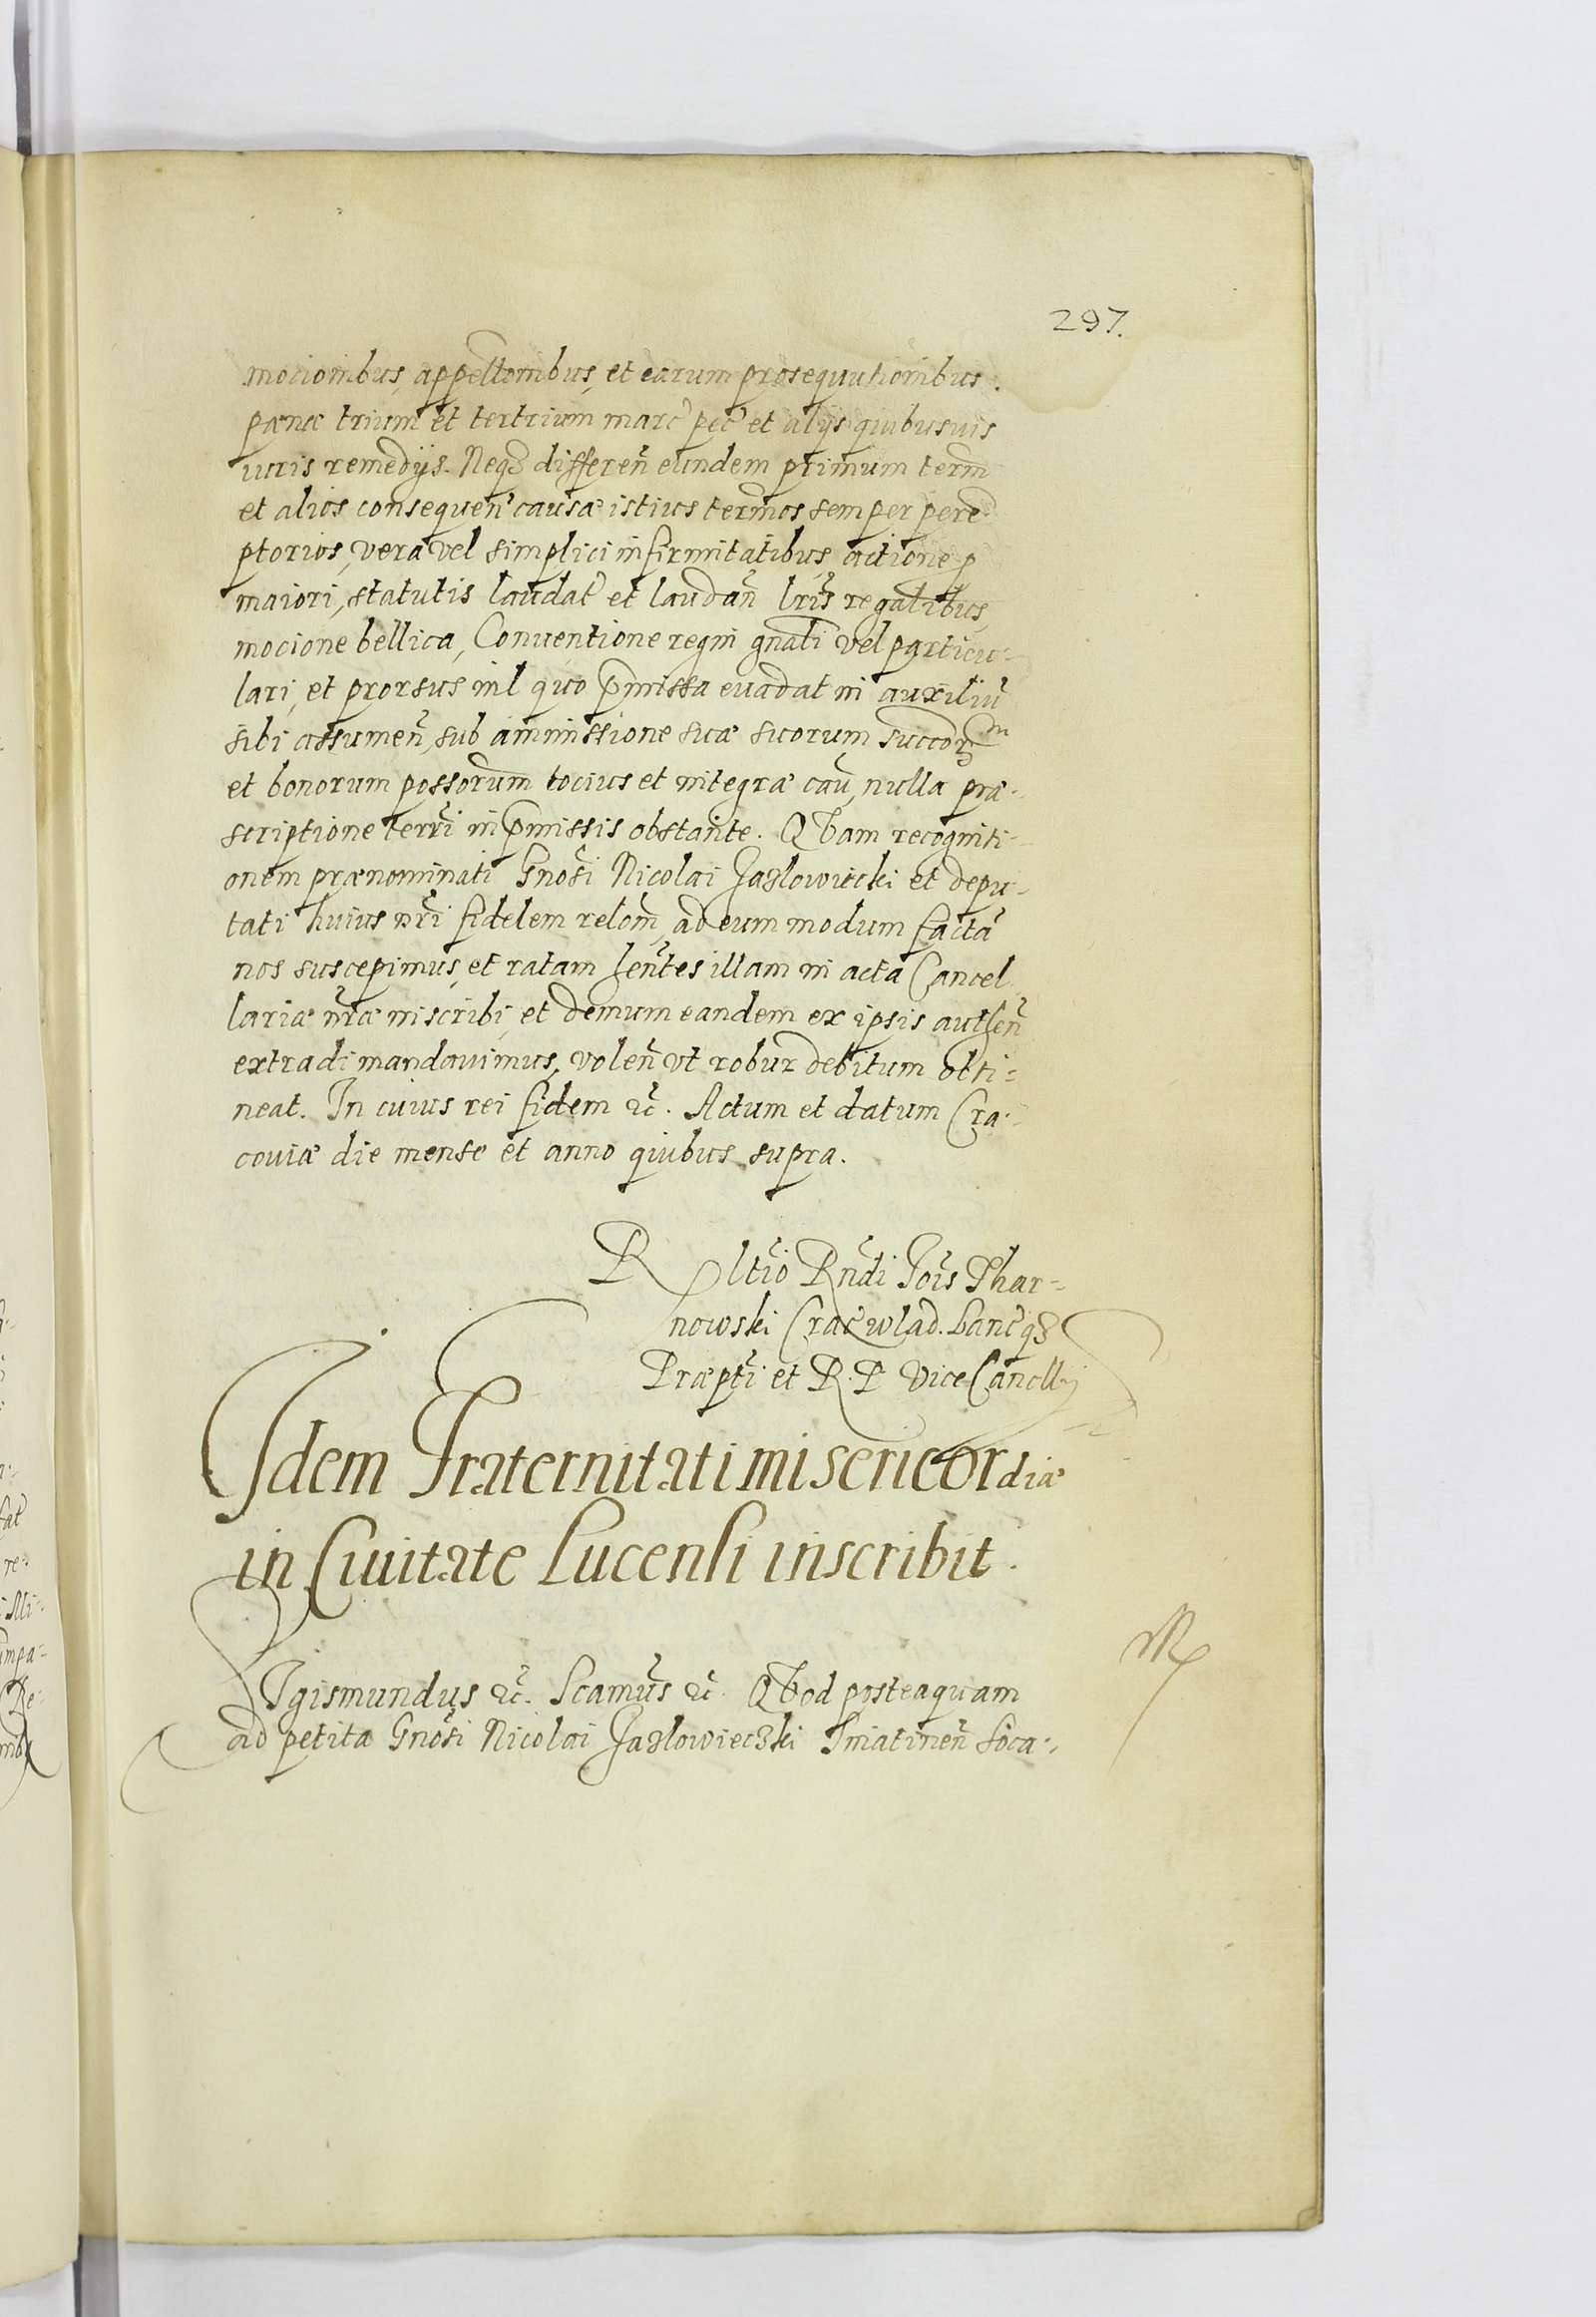 297.
motionibus, appelltionibus, et earum prosequutionibus.
pœnæ trium et tertrium marc̃ pec̃ et alijs quibusuis
iuris remedijs. Neq3 differen̄ eundem primum term̄
et alios consequen̄ causæ istius term̄os semper perem̄
ptorios, vera vel simplici infirmitatibus, actione p
maiori, statutis laudat̃ et laudan̄ lr̃is regalibus,
mocione bellica, Conuentione regni gnãli vel particu-
lari, et prorsus nil quo p̄missa euadat in auxiliũ
sibi assumen̄, sub ammissione suæ suorum succorz̃
et bonorum possorum tocius et integræ cau, nulla præ-
scriptione terr̃i in p̄missis obstante. Quam recogniti-
onem prænominati Gnõsi Nicolai Jazlowiecki et depu-
tati huius nr̃i fidelem relom̄, ad eum modum factã
nos suscepimus, et ratam hen̄tes illam in acta Cancel
lariæ nr̃æ inscribi, et demum eandem ex ipsis authen̄
extradi mandauimus, volen̄ vt robur debitum obti-
neat. In cuius rei fidem &c̃. Actum et datum Cra-
couiæ die mense et anno quibus supra.
R ltĩo Rñdi Joĩs Thar-
nowski Crac̃ wlad. Lanc̃ q3
Præptĩ et R. P Vice Cancllj
Idem Fraternitati misericordiæ
in Ciuitate Lucensi inscribit.
SIgismundus &c̃. Scamũs &c̃. Quod posteaquam
ad petita Gnõsi Nicolai Jazlowieczki Sniatinen̄ Soca-